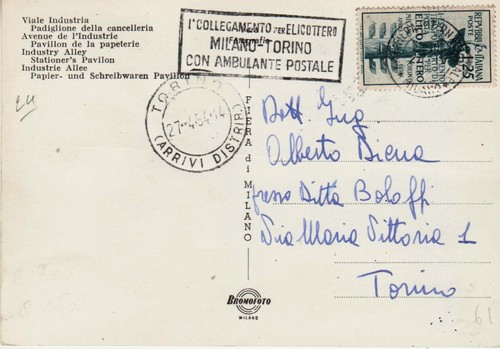 Viale Industria
Padiglione della cancelleria
Avenue de l'Industrie
Pavillon de la papeterie
Industry Alley
Stationer's Pavilon
Industrie Allee
Papier- und Schreibwaren Pavillon
I° COLLEGAMENTO PER ELICOTTERO
MILANO-TORINO
CON AMBULANTE POSTALE
REPUBBLICA ITALIANA
POSTE
L. 25
TORINO
27-4-54-14
(ARRIVI DISTRIB.)
FIERA di MILANO
Dott. Ing.
Alberto Diena
presso Ditta Bolaffi
Via Maria Vittoria 1
Torino
BROMOFOTO
MILANO
61